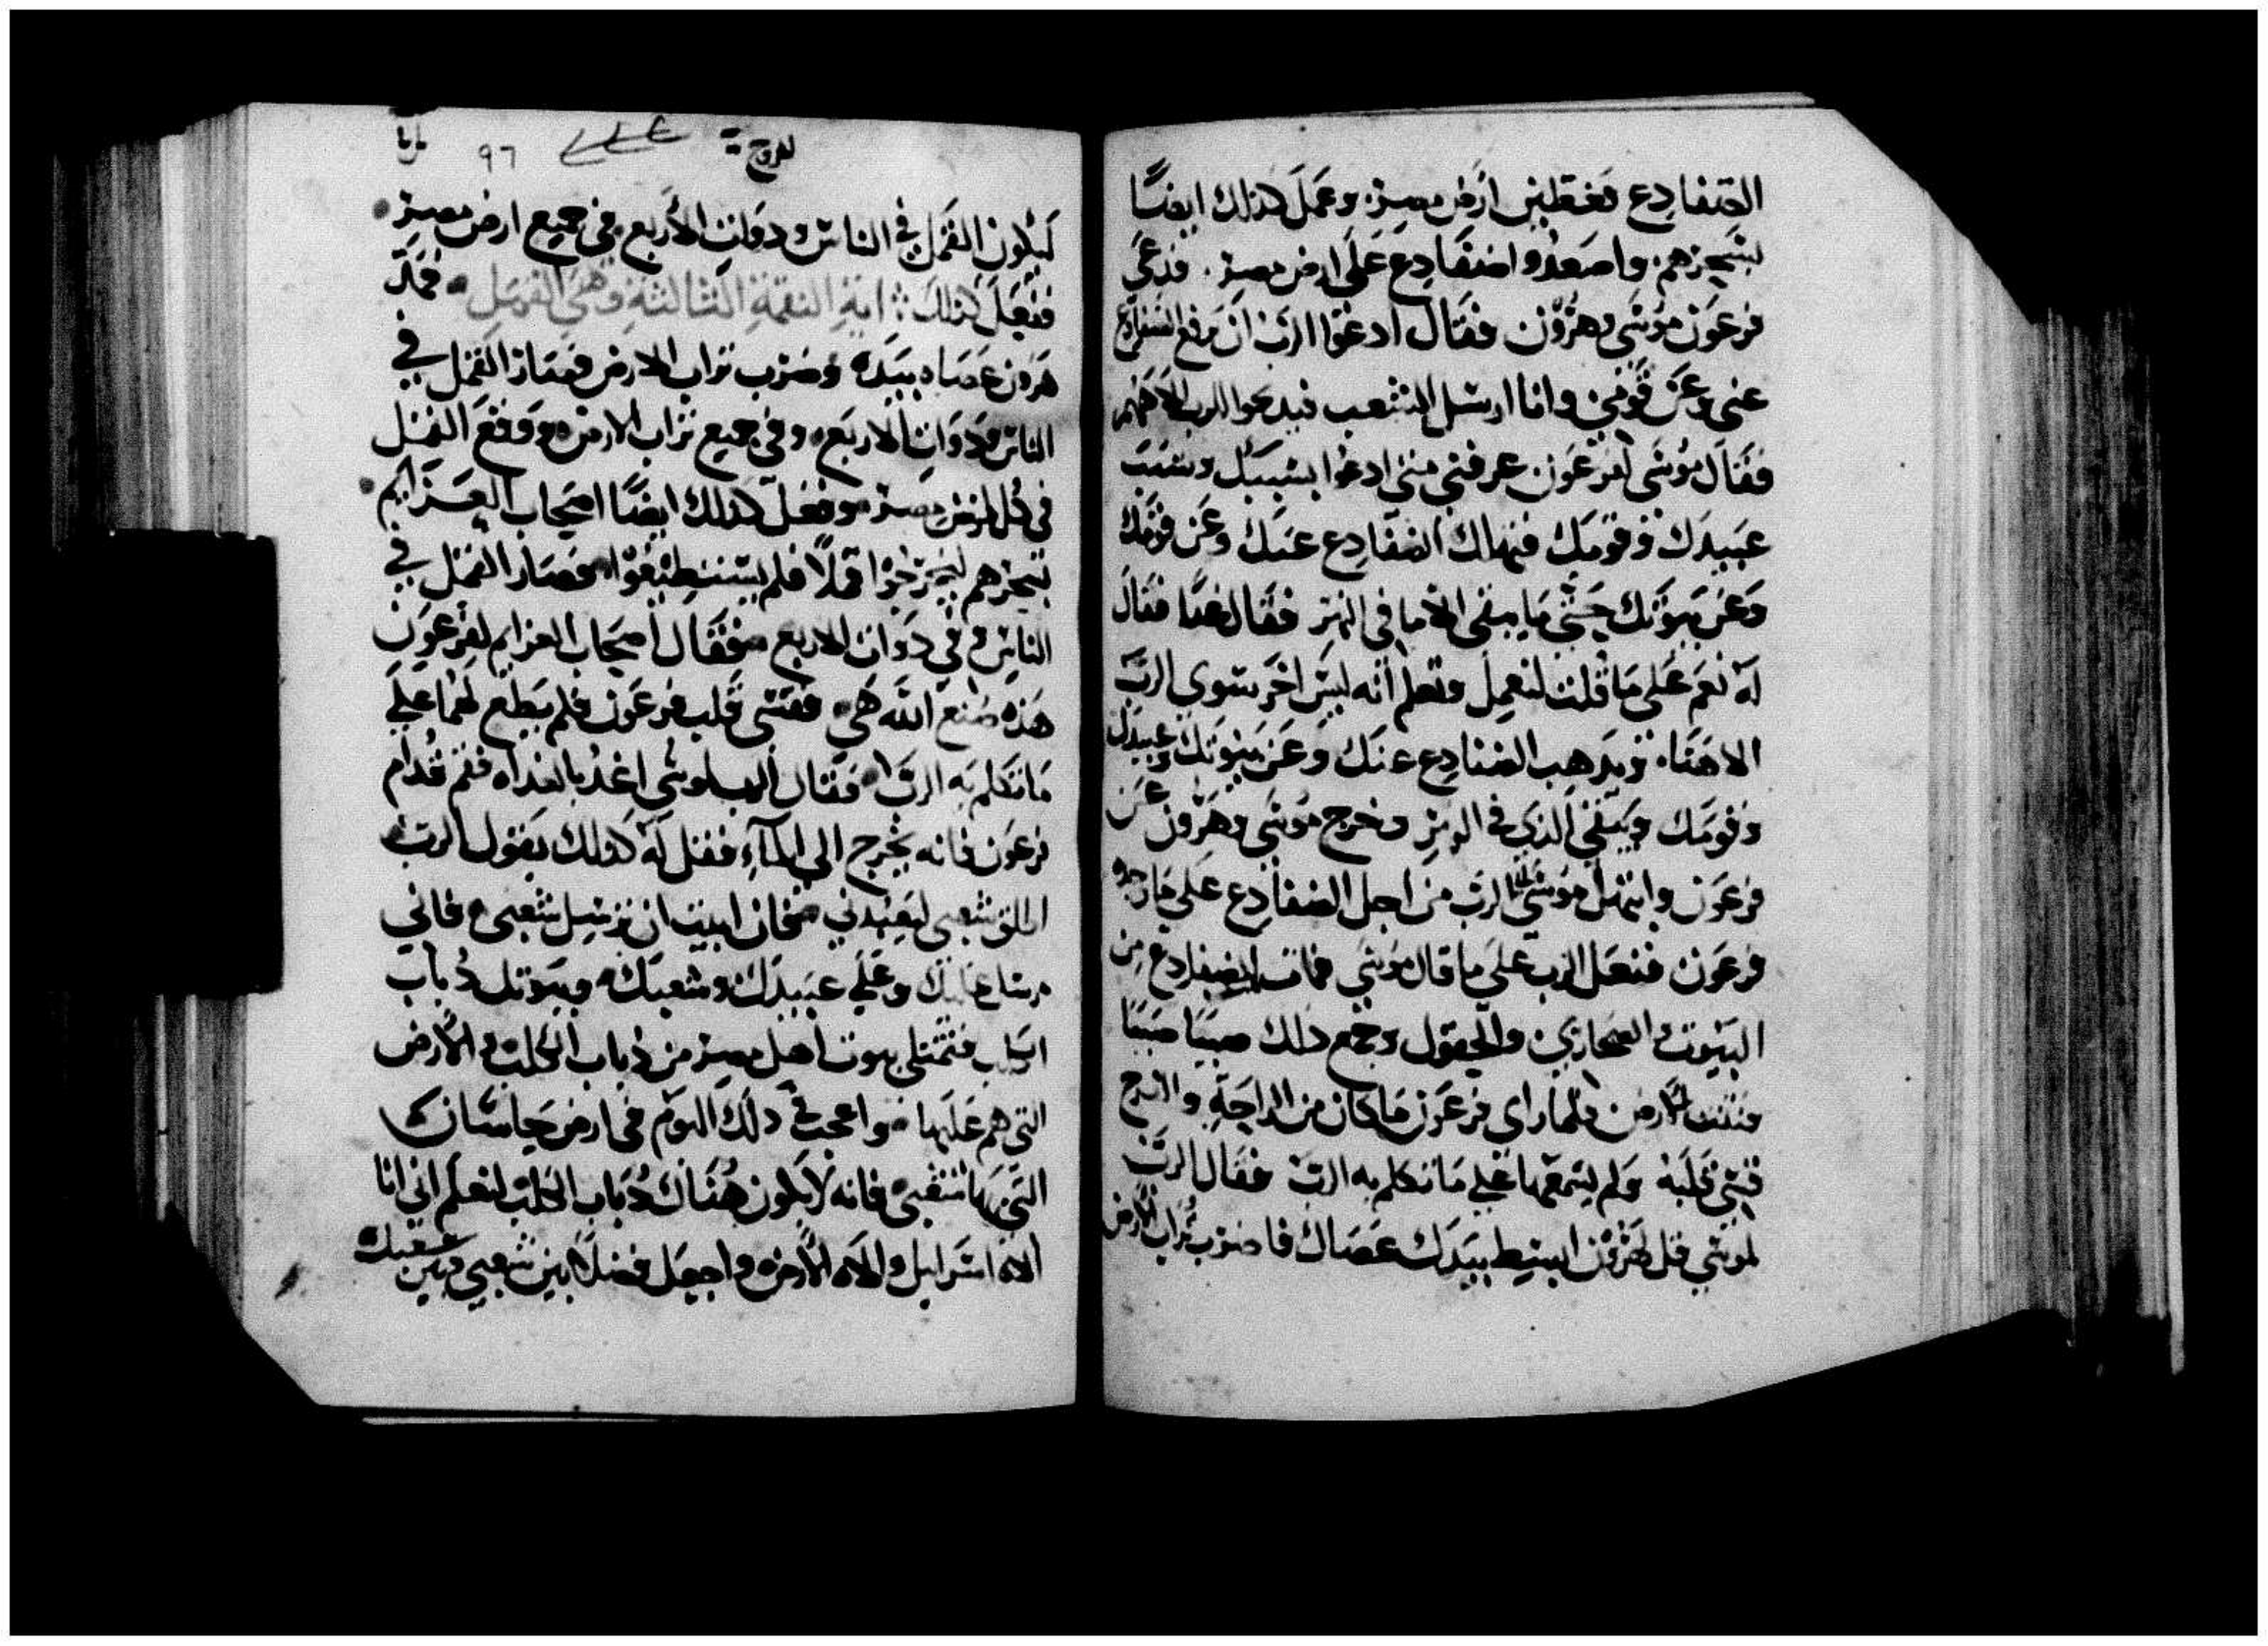 الضفادع فغطين ارض مصر. وعمل كذلك ايضًا
بسحرهم. واصعدوا ضفادع على ارض مصر. فدعى
فرعون موسى وهرون فقال ادعوا الرب ان يرفع الضفادع
عنى وعن قومي وانا ارسل الشعب فيدعوا للرب الاههم
فقال موسى لفرعون عرفني متى ادعوا بسببك وسبب
عبيدك وقومك فيهلك الضفادع عنك وعن قومك
وعن بيوتك حتى ما يبقى الا ما في النهر فقال غدا فقال
له نعم على ما قلت لتعلم وتعلم انه ليس اخر سوى الرب
الاهنا. ويذهب الضفادع عنك وعن بيوتك وعبيدك
وقومك ويبقى الذي في النهر وخرج موسى وهرون عن
فرعون وابتهل موسى الى الرب من اجل الضفادع على ما حده
فرعون ففعل الرب على ما قال موسى فماتت الضفادع من
البيوت والصحاري والحقول وجمع ذلك صببًا صببًا
ونتنت الارض فلما راى فرعون ما كان من الراحة والفرج
قسى قلبه ولم يسمعهما على ما تكلم به الرب فقال الرب
لموسى قل لهرون ابسط بيدك عصاك فاضرب تراب الارض
٩٦
ليكون القمل في الناس ودوات الاربع في جميع ارض مصر
ففعل كذلك: اية النقمة الثالثة وهي القمل فمد
هرون عصاه بيده وضرب تراب الارض فصار القمل في
الناس ودوات الاربع وفي جميع تراب الارض ووقع القمل
في كل ارض مصر وفعل كذلك ايضًا اصحاب العزايم
بسحرهم ليخرجوا قملًا فلم يستطيعوا فصار القمل في
الناس وفي دوات الاربع فقال اصحاب العزايم لفرعون
هذه صنع الله هي فقسى قلب فرعون فلم يطع لهما على
ما تكلم به الرب فقال الرب لموسى اغد بالغداه فقم قدام
فرعون فانه يخرج الى الماء فقل له كذلك يقول الرب
اطلق شعبى ليعبدني فان ابيت ان ترسل شعبى فاني
مرسل عليك وعلى عبيدك وشعبك وبيوتك ذباب
الكلب فتمتلى بيوت اهل مصر من ذباب الكلب والارض
التي هم عليها واعجب في ذلك اليوم في ارض جاسان
التي بها شعبى فانه لا يكون هناك ذباب الكلب لتعلم اني انا
الاه اسرايل والاه الارض واجعل فضلًا بين شعبي وبين شعبك